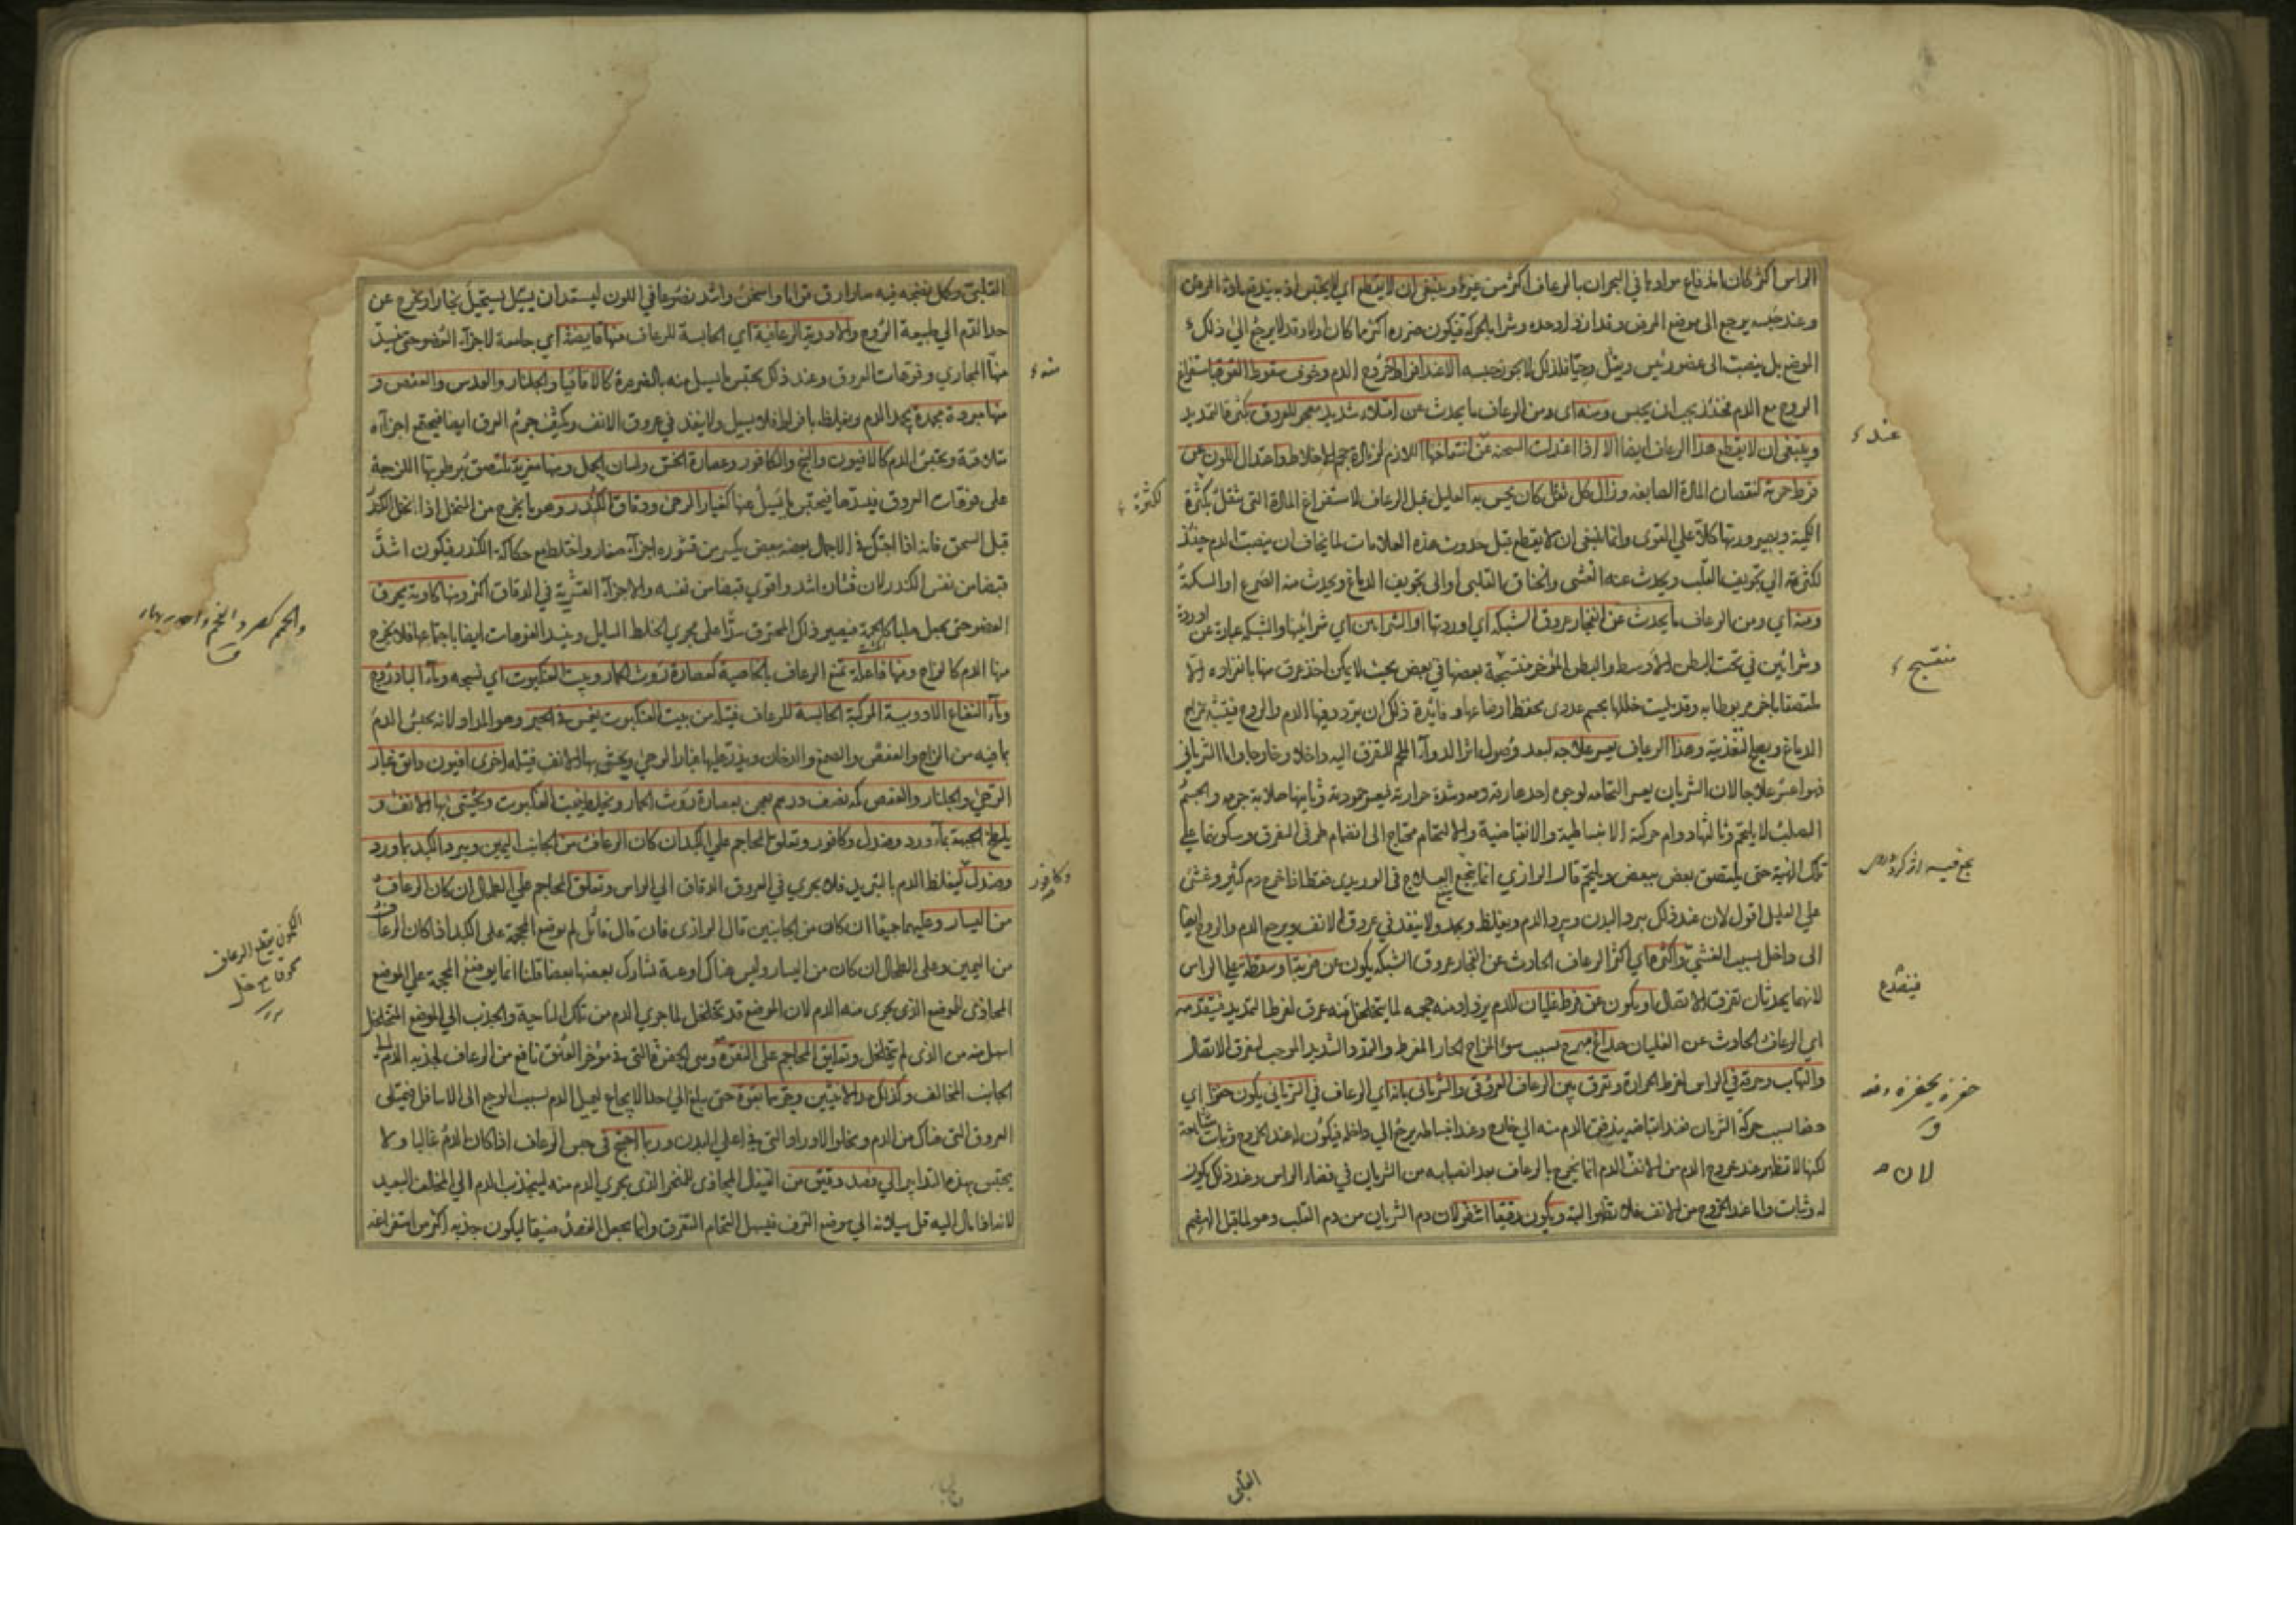 الراس اكثر كان اندفاع موادها في البحران بالرعاف اكثر من غيرها وينبغي ان لا يقطع اي لا يحتبس اذ به يندفع مادة المرض
وعند حبسه يرجع الى موضع المرض وقد ازداد حده وشرا بالحركة فيكون ضرره اكثر ما كان اولا وقد لا يرجع الى ذلك
الموضع بل ينصب الى عضو رئيس ويثقل وحيا فلذلك لا يجوز حبسه الا عند افراط خروج الدم وخوف سقوط القوة باستفراغ
الروح مع الدم فحينئذ يجب ان يحبس ومنه اي ومن الرعاف ما يحدث عن امتلاء شديد مفجر للعروق بكثرة التمديد
وينبغي ان لا يقطع هذا الرعاف ايضا الا اذا اعتدلت السحنة عن انتفاخها اللازم لزيادة حجم الاخلاط واعتدال اللون عن
فرط حمرة لنقصان المادة الصابغه وزال كل ثقل كان يحس به العليل قبل الرعاف لاستفراغ المادة التي تثقل بكثرة
الكمية ويصيرورتها كلا على القوى وانما ينبغي ان لا يقطع قبل حدوث هذه العلامات لما يخاف ان ينصب الدم حينئذ
لكثرته الي تجويف القلب ويحدث عنه الغشى والخناق القلبي او الى تجويف الدماغ ويحدث منه الصرع او السكتة
ومنه اي ومن الرعاف ما يحدث عن انفجار عروق الشبكه اي اوردتها او الشرايين اي شرائينها والشبكه عبارة عن اوردة
وشرائين في تحت البطن الاوسط والبطن المؤخر منتسجة بعضها في بعض بحيث لا يمكن اخذ عرق منها بانفراده الا
ملتصقا باخر مربوطا به وقد مليت خللها بجسم غددى يحفظ اوضاعها وفائدة ذلك ان يتردد فيها الدم والروح فيتشبه بمزاج
الدماغ ويصلح لتغذيته وهذا الرعاف يعسر علاجه لبعد وصول اثر الدوآء الملحم للتفرق اليه داخلا وخارجا واما الشرياني
فهو اعسر علاجا لان الشريان يعسر التحامه لوجوه احدها رقة دمه وشدة حرارته فيعسر جموديته وثانيها صلابة جرمه والجسم
الصلب لا يلتحم وثالثها دوام حركته الانبساطية والانقباضية والالتحام محتاج الى انضمام طرفي التفرق وسكونهما على
تلك الهيئة حتى يلتصق بعض ببعض ويلتحم قال الرازي انما ينجع العلاج في الوريدى فقط اذا خرج دم كثير وغشى
على العليل اقول لان عند ذلك يبرد البدن ويبرد الدم ويغلظ ويجمد ولا ينفذ في عروق الانف ويرجع الدم والروح ايضا
الى داخل بسبب الغشي واكثره اي اكثر الرعاف الحادث عن انفجار عروق الشبكه يكون عن ضربة او سقطة على الراس
لانهما يحدثان تفرق الاتصال او يكون عن فرط غليان للدم يزداد منه حجمه لما يتخلخل منه عرق لفرط التمديد فيتقدمه
اي الرعاف الحادث عن الغليان صداع مبرح بسبب سوء المزاج الحار المفرط والتمدد الشديد الموجب لتفرق الاتصال
والتهاب وحمرة في الراس لفرط الحرارة وتفرق بين الرعاف العروقي والشرياني بانه اي الرعاف في الشرياني يكون حفزا اي
دفعا بسبب حركة الشريان فعند انقباضه يندفع الدم منه الي خارج وعند انبساطه يرجع الي داخله فيكون له عند الخروج وثبات متتابعة
لكنها لا تظهر عند خروج الدم من الانف لان الدم انما يخرج بالرعاف بعد انصبابه من الشريان في فضاء الراس وعند ذلك يكون
له وثبات واما عند الخروج من الانف فلا تظهر البتة ويكون رقيقا اشقر لان دم الشريان من دم القلب وهو لما قبل الهضم
عند
لكثرة
منتسج
فينصدع
حفزه يحفزه دفعه
لان
القلبي
القلبي وكمل نضجه فيه صار ارق قواما واسخن واشد نصوعا في اللون ليستعد ان يستحيل بخارا ويخرج عن
حد الدم الي طبيعة الروح والادوية الرعافية اي الحابسة للرعاف منها قابضة اي جامعة لاجزآء العضو حتى يفسد
منه المجاري وفوهات العروق وعند ذلك يحتبس ما يسيل منه بالضرورة كالاقاقيا والجلنار والعدس والعفص و
منها مبردة مجمدة يجمد الدم ويغلظه بافراط فلا يسيل ولا ينفذ في عروق الانف ويكثف جرم العرق ايضا فيجتمع اجزآءه
متلاقية ويحتبس الدم كالافيون والبنج والكافور وعصارة الخس ولسان الحمل ومنها مغرية يلتصق برطوبتها اللزجة
على فوهات العروق فيسدها فيحتبس ما يسيل منها كغبار الرحى ودقاق الكندر وهو ما يخرج من المنخل اذا نخل الكندر
قبل السحق فانه اذا احتك في الاحمال بعضه ببعض يكسر من قشوره اجزآء صغار واختلط مع حكاكة الكندر فيكون اشد
قبضا من نفس الكندر لان قشاره اشد واقوي قبضا من نفسه والاجزآء القشرية في الدقاق اكثر ومنها كاوية يحرق
العضو حتى يجعل صلبا كالحمة فيصير ذلك المحترق سدا على مجري الخلط السايل ويفسد الفوهات ايضا باجتماعها فلا يخرج
منها الدم كالزاج ومنها فاعلة تمنع الرعاف بالخاصية كعصارة روث الحمار وبيت العنكبوت اي نسجه ومآء الباذروج
ومآء النعناع الادوية المركبة الحابسة للرعاف فتيلة من بيت العنكبوت يغمس في الحبر وهو المداد لانه يحبس الدم
بما فيه من الزاج والعفص والصمغ والدخان ويذر عليها غبار الرحى ويحشى بها الانف فتيلة اخرى افيون دانق غبار
الرحى والجلنار والعفص كه نصف درهم يعجن بعصارة روث الحمار ويخلط ببيت العنكبوت ويحشى بها الانف و
يلطخ الجبهة بمآء ورد وصندل وكافور وتعلق المحاجم على الكبد ان كان الرعاف من الجانب اليمين ويبرد الكبد بماورد
وصندل ليغلظ الدم بالتبريد فلا يجري في العروق الدقاق الي الراس وتعلق المحاجم على الطحال ان كان الرعاف
من اليسار وعليهما جميعا ان كان من الجانبين قال الرازى فان قال قائل لم يوضع المحجمة على الكبد اذا كان الرعاف
من اليمين وعلى الطحال ان كان من اليسار وليس هناك اوعية تشارك بعضها بعضا قلنا انما يوضع المحجمة على الموضع
المحاذى للموضع الذى يجرى منه الدم لان الموضع قد تخلخل لما جري الدم من تلك الناحية والجذب الي الموضع المتخلخل
اسهل منه من الذى لم يتخلخل وتعليق المحاجم على النقرة وهى الحفرة التى في مؤخر العنق نافع من الرعاف لجذبه الدم الى
الجانب المخالف وكذلك مد الانثيين وغمزهما بقوة حتى يبلغ الي حد الايجاع ليميل الدم بسبب الوجع الى الاسافل فيمتلى
العروق التى هناك من الدم ويخلوا الاوراد التى في اعلى البدن وربما احتيج في حبس الرعاف اذا كان الدم غالبا ولا
يحتبس بهذه التدابير الي فصد دقيق من القيفال المحاذى للمنخر الذى يجرى الدم منه لينجذب الدم الي المخالف البعيد
لانه اذا مال اليه قل سيلانه الي موضع النزف فيسهل التحام التفرق وانما يجعل الفصد ضيقا ليكون جذبه اكثر من استفراغه
منه
وكافور
الكمون يقطع الرعاف